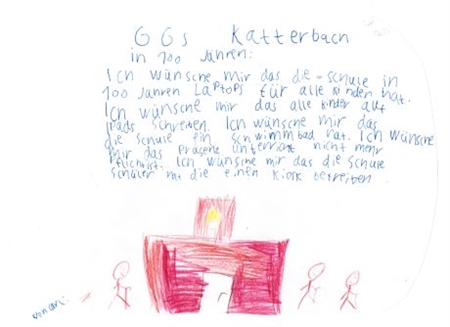 GGS Katterbach
in 100 Jahren:
Ich wünsche mir das die schule in
100 Jahren LAPtOPs für alle kinder hat.
Ich wünsche mir das alle kinder auf
ipads schreiben. Ich wünsche mir das
die schule ein schwimmbad hat. Ich wünsche
mir das präsenz unterricht nicht mehr
pflicht ist. Ich wünsche mir das die schule
schüler mit die einen Kiosk betreiben.
von